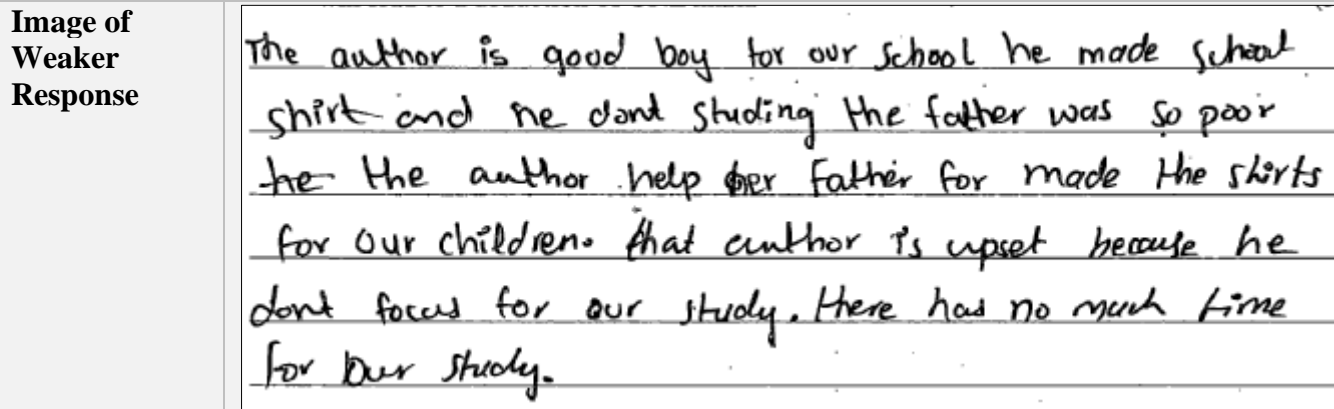 Image of
Weaker
Response
The author is good boy for our school he made school
shirt and he dont studing the father was so poor
he the author help her Father for made the shirts
for our children. that author is upset because he
dont focus for our study. there has no much time
for our study.